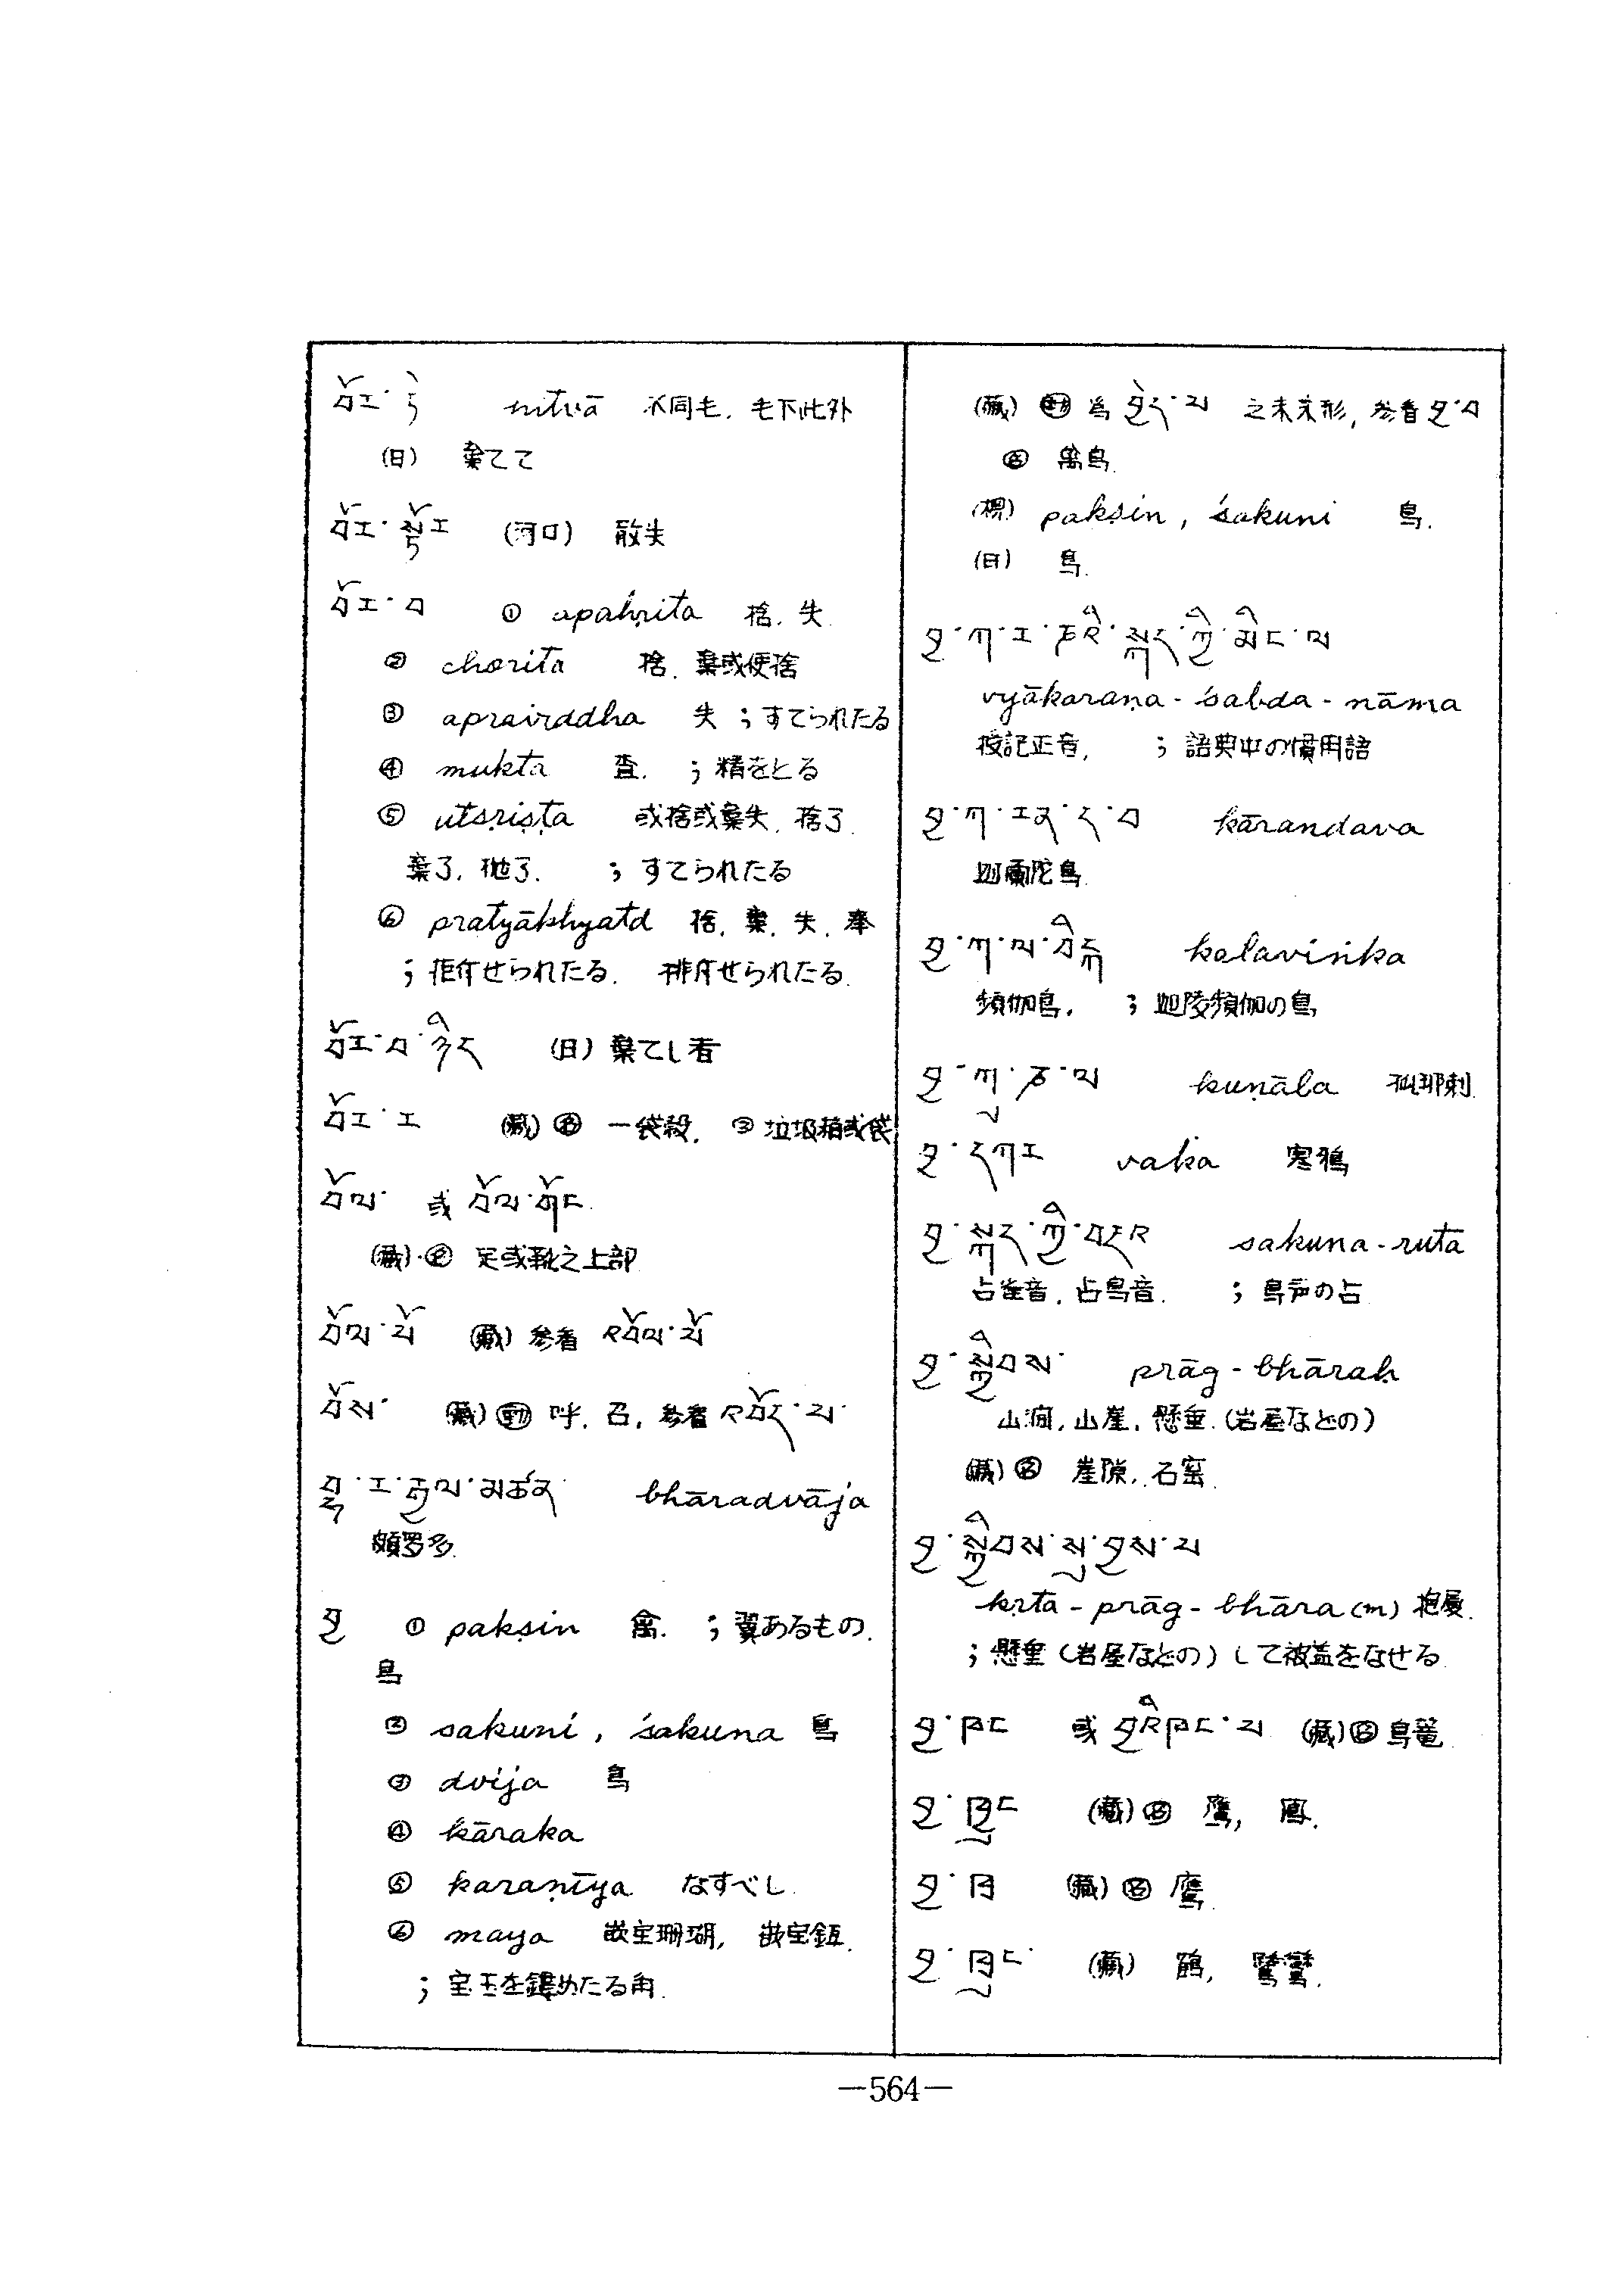 བོར་ཏེ nitvā 不同毛. 毛下此外
(日) 棄てて
བོར་སྟོར (河口) 散失
བོར་བ ① apahṛita 捨. 失.
② chorita 捨. 棄或便捨
③ aprairddha 失 ; すてられたる
④ mukta 査. ; 精をとる
⑤ utsṛiṣṭa 或捨或棄失. 捨了.
棄了. 抛了. ; すてられたる
⑥ pratyākhyatd 捨. 棄. 失. 奉
; 拒斥せられたる. 排斥せられたる.
བོར་བ་ཉིད (日) 棄てし者
བོར་ར (藏) 名 一袋穀. ② 垃圾箱或袋
བོལ་ 或 བོལ་གོང.
(藏)·名 足或靴之上部
བོལ་པོ (藏) 参看 འབོལ་པོ
བོས་ (藏) 動 呼. 召, 参看 འབོད་པ་
བྷ་ར་དྭལ་མཚན bhāradvāja
頗罗多.
བྱ ① pakṣin 禽. ; 翼あるもの.
鳥
② sakuni, śakuna 鳥
③ dvija 鳥
④ kāraka
⑤ karaṇīya なすべし.
⑥ maya 嵌宝珊瑚, 嵌宝
; 宝玉を鏤めたる角.
(藏) 動 為 བྱེད་པ 之未来形, 参看 བྱ་བ
名 禽鳥.
(榊) pakṣin, śakuni 鳥.
(日) 鳥.
བྱ་ཀ་ར་ཎའི་སྐད་ཀྱི་མིང་ལ
vyākaraṇa - śabda - nāma
授記正音, ; 語典中の慣用語
བྱ་ཀ་རན་ད་བ kārandava
迦蘭陀鳥.
བྱ་ཀ་ལ་བིངྐ kalaviṅka
頻伽鳥. ; 迦陵頻伽の鳥
བྱ་ཀུ་ཎ་ལ kuṇāla
བྱ་དཀར vaka 寒鴉
བྱ་སྐད་ཀྱི་བརྡ sakuna-ruta
占雀音. 占鳥音. ; 鳥声の占
བྱ་སྐྱིབས་ prāg - bhāraḥ
山洞, 山崖, 懸垂. (岩屋などの)
(藏) 名 崖隙, 石窯.
བྱ་སྐྱིབས་སུ་བྱས་པ
kṛta - prāg - bhāra (m)
; 懸垂 (岩屋などの) して被蓋をなせる.
བྱ་ཁང 或 བྱའིཁང་པ (藏) 名 鳥篭.
བྱ་ཁྱུང (藏) 名 鷹, 鳳.
བྱ་ཁྲ (藏) 名 鷹.
བྱ་ཁྲུང་ (藏) 鶴, 鷺鸞.
—564—